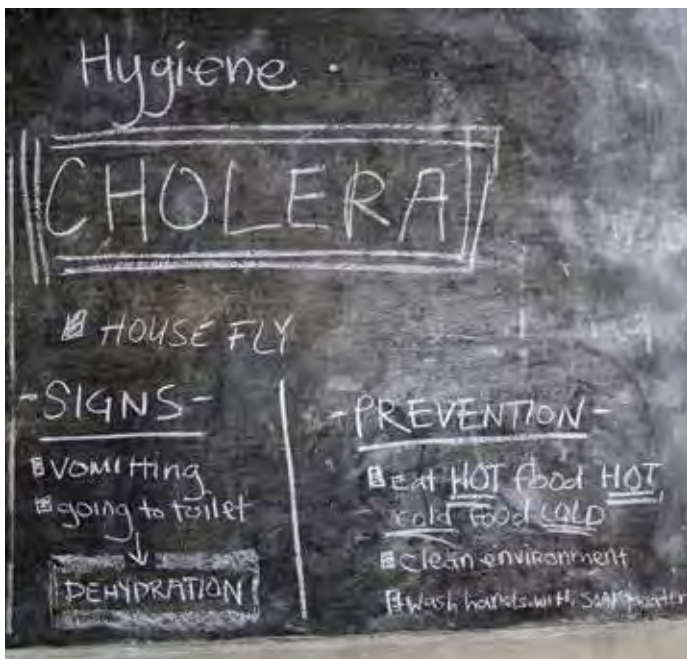 Hygiene.
CHOLERA
HOUSE FLY
-SIGNS-
vomitting
going to toilet
↓
DEHYDRATION
-PREVENTION-
Eat HOT food HOT,
cold food COLD
clean environment
Wash hands with soap